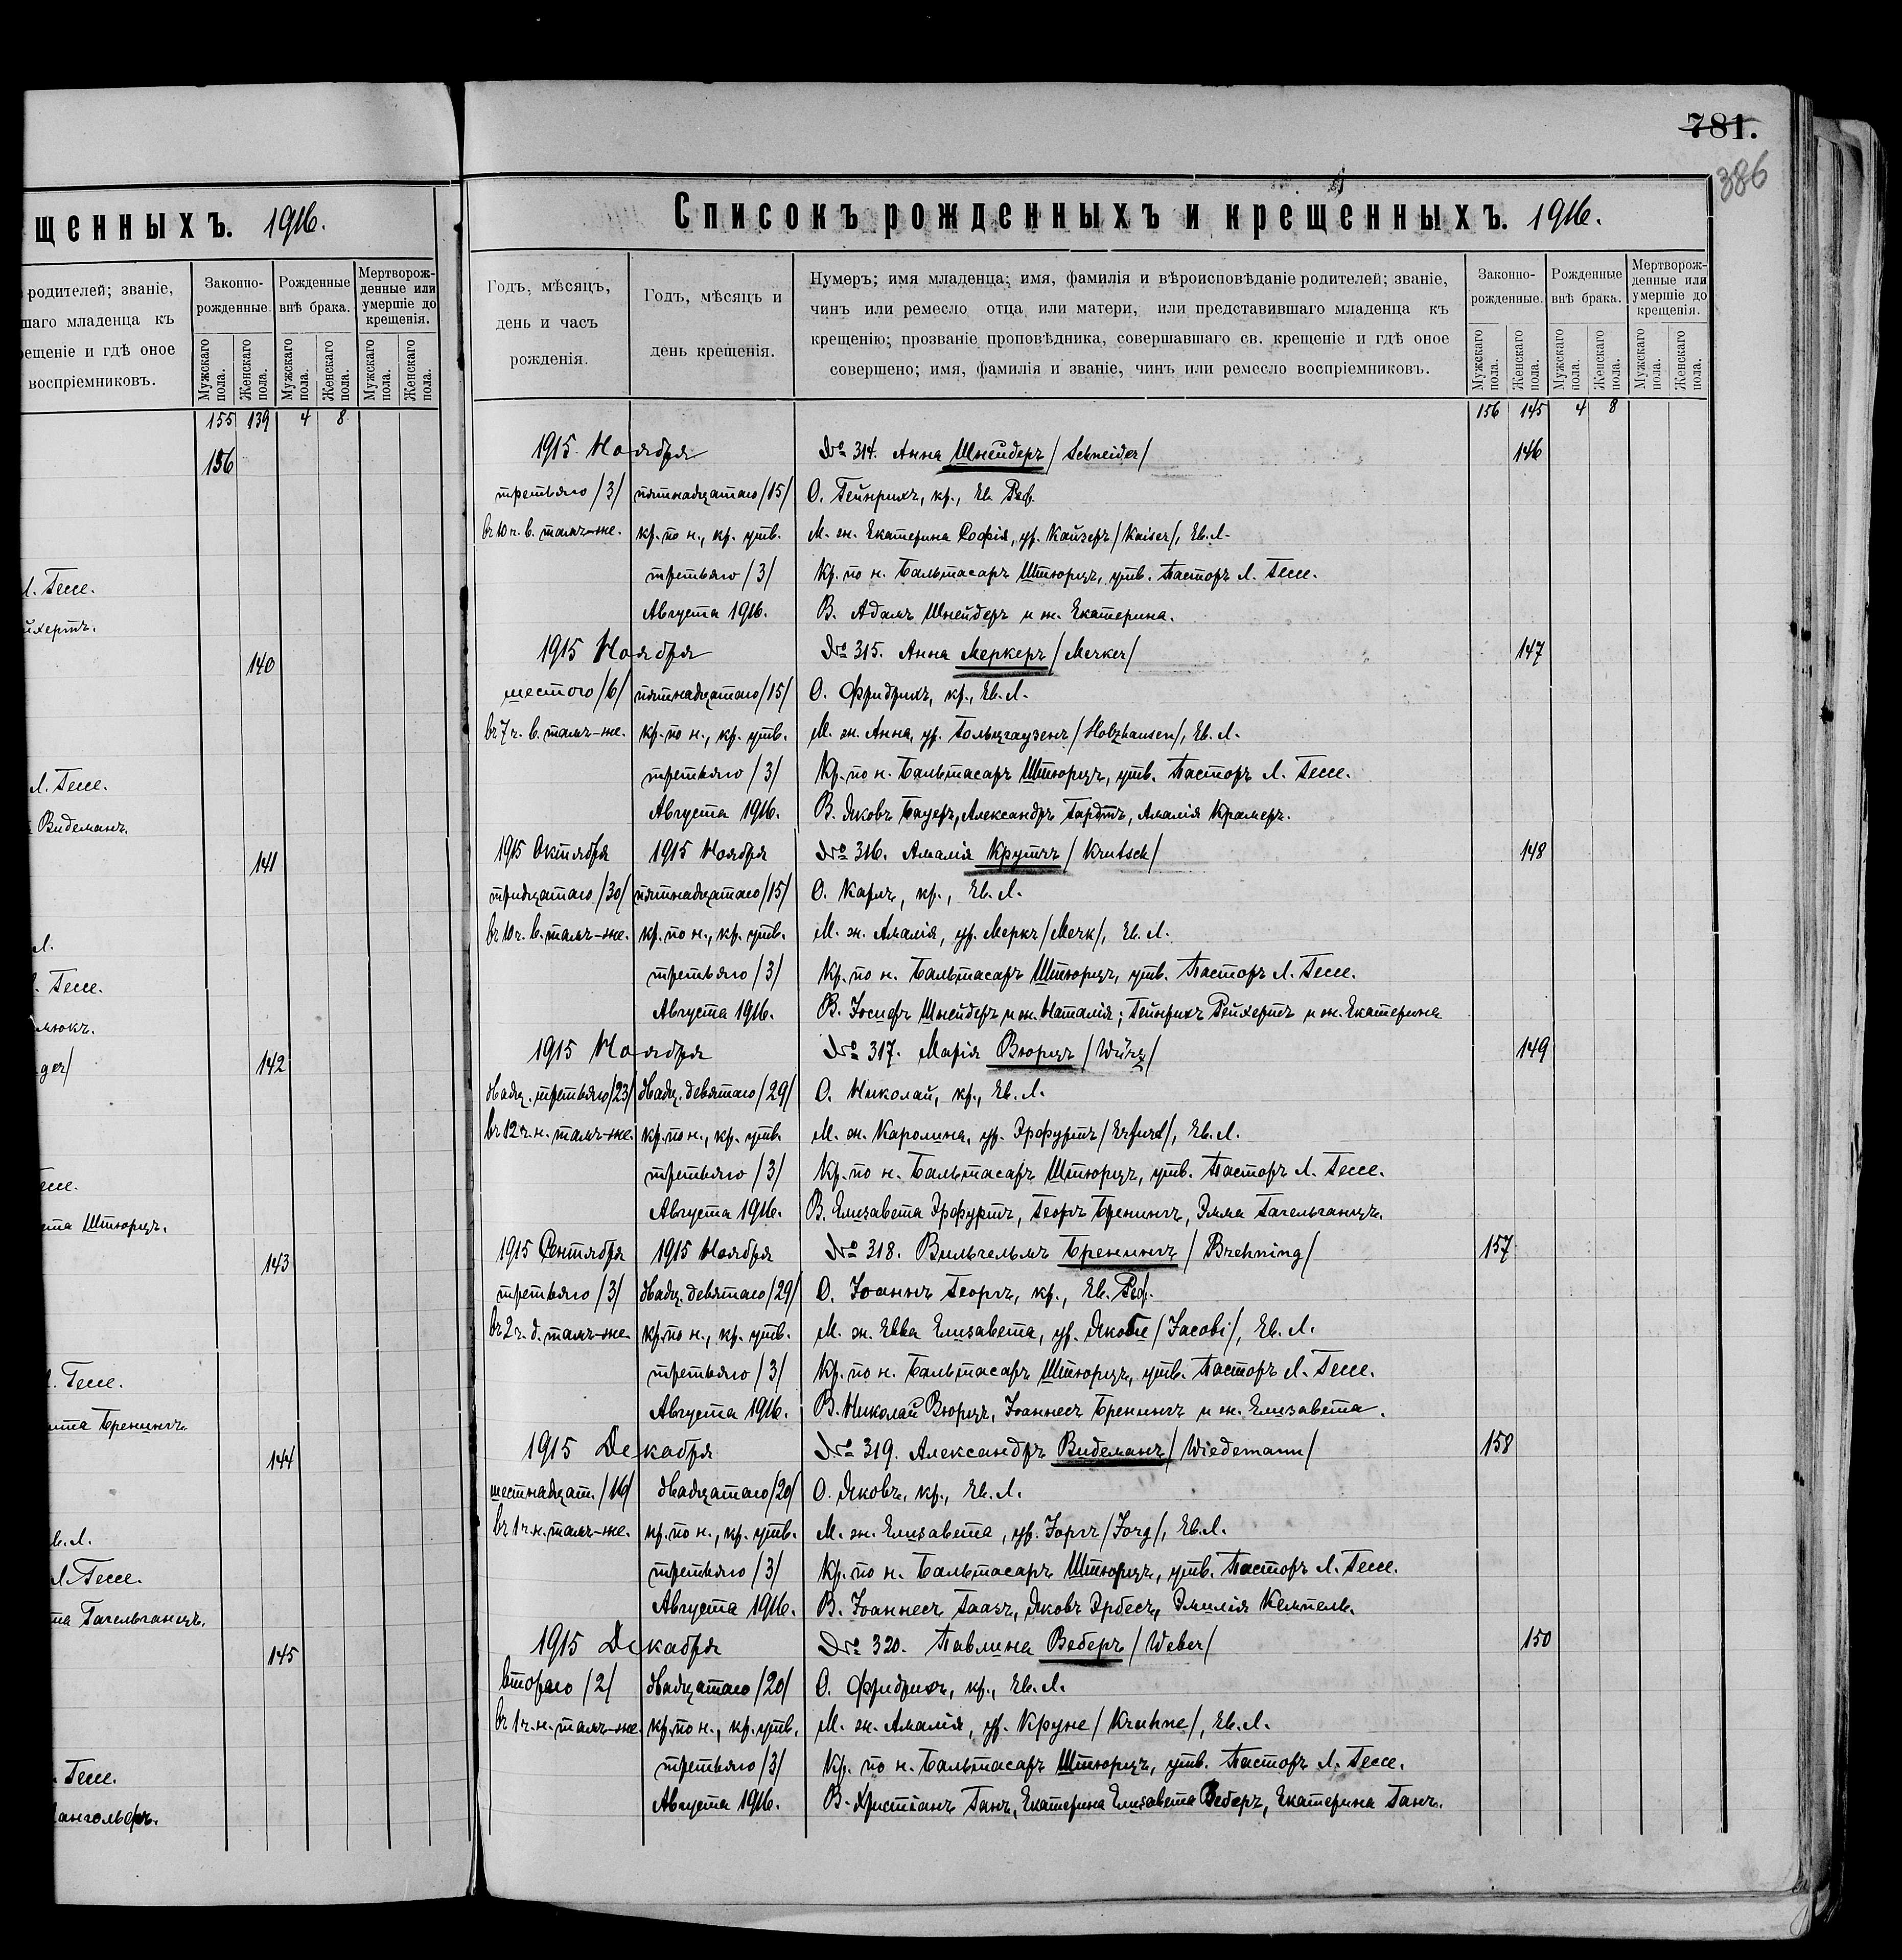 781.
386
щенныхъ. 1916.
родителей; званіе,
шаго младенца къ
рещеніе и гдѣ оное
воспріемниковъ.
Законно-рожденные.
Рожденные внѣ брака.
Мертворож-денные или умершіе до крещенія.
Мужскаго пола.
Женскаго пола.
Мужскаго пола.
Женскаго пола.
Мужскаго пола.
Женскаго пола.
155 139 4 8
156
Л. Гессе.
140
Л. Гессе.
Видеманъ.
141
Л.
Л. Гессе.
142
ger/
Гессе.
Штюрцъ.
143
Л. Гессе.
Бренингъ.
144
Ев. Л.
Л. Гессе.
Гагельгансъ.
145
Гессе.
Списокъ рожденныхъ и крещенныхъ. 1916.
Годъ, мѣсяцъ,
день и часъ
рожденія.
Годъ, мѣсяцъ и
день крещенія.
Нумеръ; имя младенца; имя, фамилія и вѣроисповѣданіе родителей; званіе,
чинъ или ремесло отца или матери, или представившаго младенца къ
крещенію; прозваніе проповѣдника, совершавшаго св. крещеніе и гдѣ оное
совершено; имя, фамилія и званіе, чинъ или ремесло воспріемниковъ.
Законно-рожденные.
Рожденные внѣ брака.
Мертворож-денные или умершіе до крещенія.
Мужскаго пола.
Женскаго пола.
Мужскаго пола.
Женскаго пола.
Мужскаго пола.
Женскаго пола.
156 145 4 8
1915 Ноября № 314. Анна Шнейдеръ /Schneider/ 146
третьяго /3/ пятнадцатаго /15/ О. Гейнрихъ, кр., Ев. Реф.
въ 10 ч. в. тамъ-же. кр. по н., кр. утв. М. ж. Екатерина Софія, ур. Кайзеръ /Kaiser/, Ев. Л.
третьяго /3/ Кр. по н. Бальтасаръ Штюрцъ, утв. Пасторъ Л. Гессе.
Августа 1916. В. Адамъ Шнейдеръ и ж. Екатерина.
1915 Ноября № 315. Анна Меркеръ /Merker/ 147
шестого /6/ пятнадцатаго /15/ О. Фридрихъ, кр., Ев. Л.
въ 7 ч. в. тамъ-же. кр. по н., кр. утв. М. ж. Анна, ур. Гольцгаузенъ /Holzhausen/, Ев. Л.
третьяго /3/ Кр. по н. Бальтасаръ Штюрцъ, утв. Пасторъ Л. Гессе.
Августа 1916. В. Яковъ Бауеръ, Александръ Гардтъ, Амалія Крамеръ.
1915 Октября 1915 Ноября № 316. Амалія Крутчъ /Krutsch/ 148
тридцатаго /30/ пятнадцатаго /15/ О. Карлъ, кр., Ев. Л.
въ 10 ч. в. тамъ-же. кр. по н., кр. утв. М. ж. Амалія, ур. Меркъ /Merk/, Ев. Л.
третьяго /3/ Кр. по н. Бальтасаръ Штюрцъ, утв. Пасторъ Л. Гессе.
Августа 1916. В. Іосифъ Шнейдеръ и ж. Наталія; Гейнрихъ Рейхертъ и ж. Екатерина
1915 Ноября № 317. Марія Вюрцъ /Würz/ 149
двадц. третьяго /23/ двадц. девятаго /29/ О. Николай, кр., Ев. Л.
въ 12 ч. н. тамъ-же. кр. по н., кр. утв. М. ж. Каролина, ур. Эрфуртъ /Erfurt/, Ев. Л.
третьяго /3/ Кр. по н. Бальтасаръ Штюрцъ, утв. Пасторъ Л. Гессе.
Августа 1916. В. Елизавета Эрфуртъ, Георгъ Бренингъ, Эмма Гагельгансъ.
1915 Сентября 1915 Ноября № 318. Вильгельмъ Бренингъ /Brehning/ 157
третьяго /3/ двадц. девятаго /29/ О. Іоаннъ Георгъ, кр., Ев. Реф.
въ 2 ч. д. тамъ-же. кр. по н., кр. утв. М. ж. Евва Елизавета, ур. Якоби /Jacobi/, Ев. Л.
третьяго /3/ Кр. по н. Бальтасаръ Штюрцъ, утв. Пасторъ Л. Гессе.
Августа 1916. В. Николай Вюрцъ, Іоаннесъ Бренингъ и ж. Елизавета.
1915 Декабря № 319. Александръ Видеманъ /Wiedemann/ 158
шестнадцат. /16/ двадцатаго /20/ О. Яковъ, кр., Ев. Л.
въ 1 ч. н. тамъ-же. кр. по н., кр. утв. М. ж. Елизавета, ур. Іоргъ /Jorg/, Ев. Л.
третьяго /3/ Кр. по н. Бальтасаръ Штюрцъ, утв. Пасторъ Л. Гессе.
Августа 1916. В. Іоаннесъ Гаазъ, Яковъ Эрбесъ, Эмилія Кемпель.
1915 Декабря № 320. Павлина Веберъ /Weber/ 150
второго /2/ двадцатаго /20/ О. Фридрихъ, кр., Ев. Л.
въ 1 ч. н. тамъ-же. кр. по н., кр. утв. М. ж. Амалія, ур. Круне /Kruhne/, Ев. Л.
третьяго /3/ Кр. по н. Бальтасаръ Штюрцъ, утв. Пасторъ Л. Гессе.
Августа 1916. В. Христіанъ Ганъ, Екатерина Елизавета Веберъ, Екатерина Ганъ.